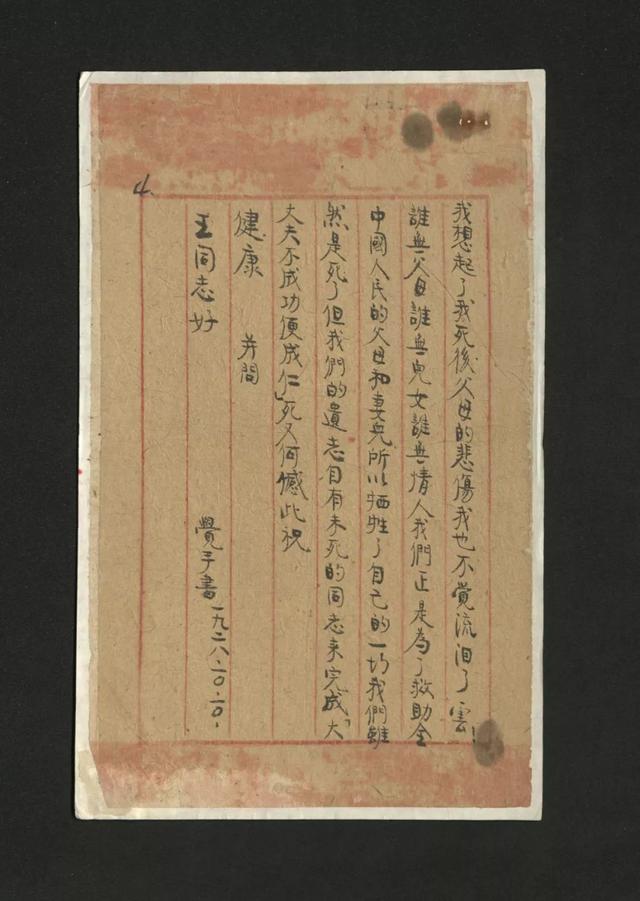 4.
我想起了我死後父母的悲傷我也不覺流泪了雲!
誰無父母誰無兒女誰無情人我們正是為了救助全
中國人民的父母和妻兒所以牺牲了自己的一切我們雖
然是死了但我們的遺志自有未死的同志來完成「大
丈夫不成功便成仁」死又何憾此祝
健康 并問
王同志好
覺予書一九二八、一〇、一〇、